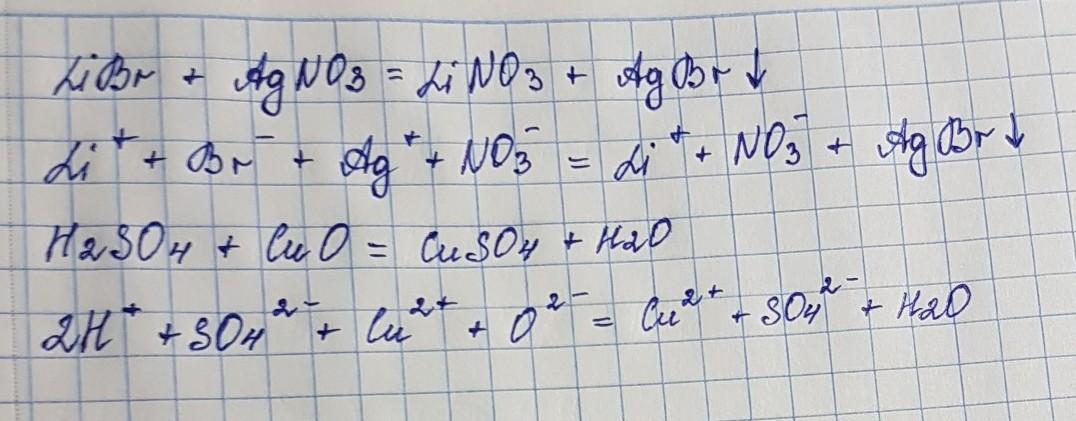 LiBr + AgNO3 = LiNO3 + AgBr↓
Li⁺ + Br⁻ + Ag⁺ + NO3⁻ = Li⁺ + NO3⁻ + AgBr↓
H2SO4 + CuO = CuSO4 + H2O
2H⁺ + SO4²⁻ + Cu²⁺ + O²⁻ = Cu²⁺ + SO4²⁻ + H2O